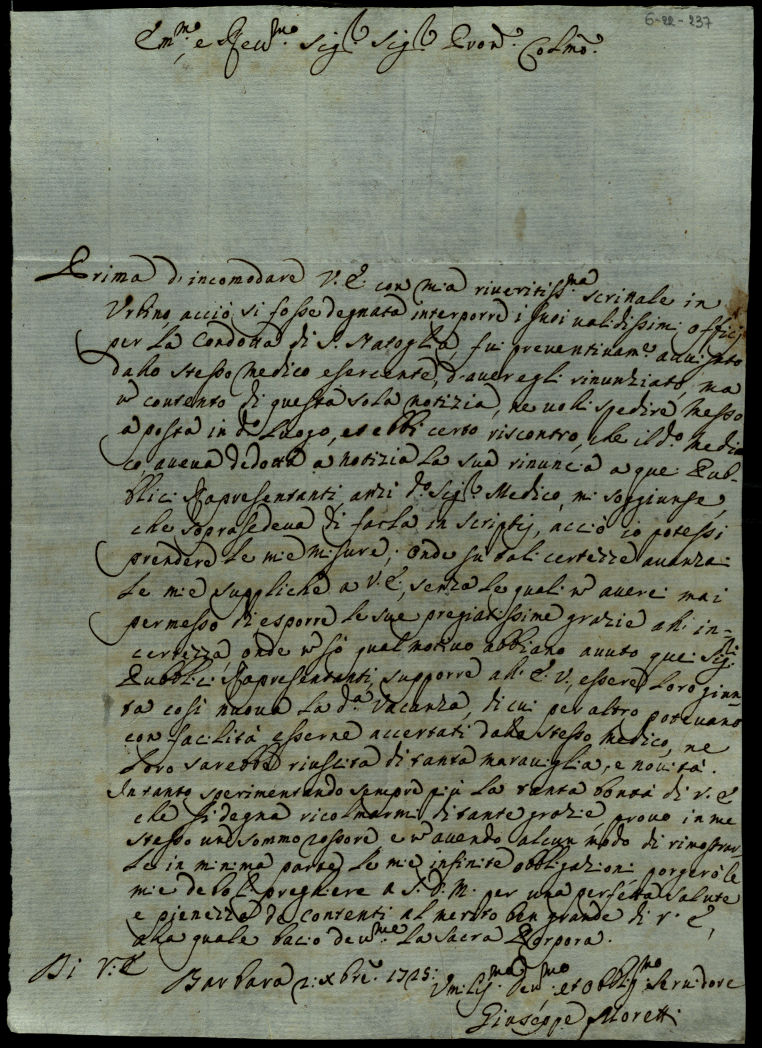 6-22-237
Em.mo, e Reu.mo Sig.r Sig.r Pron. Colmo.
Prima d'incomodare V. E. con mia riueritiss.ma scrittale in
Urbino, acciò si fosse degnata interporre i suoi ualidissimi officij
per la Condotta di S. Natoglia, fui preventivam.e auuisato
dallo stesso Medico esercente, d'auer egli rinunziato, ma
ñ contento di questa sola notizia, ne uolli spedire Messo
a posta in d.o Luogo, et ebbi certo riscontro, che il d.o Medi
co, aueua dedotta a notizia la sua rinuncia a que' Pub-
blici Rapresentanti, anzi d.o Sig.r Medico, mi soggiunse,
che soprasedeua di farla in scriptis, acciò io potessi
prendere le mie misure; Onde su tali certezze auanzai
le mie suppliche a V. E., senza le quali ñ auerei mai
permesso di esporre le sue pregiatissime grazie all' in-
certezza, onde ñ sò qual motiuo abbiano auuto que' Sig.ri
Pubblici Rapresentanti, supporre all' E. V., essere loro giun-
ta così nuoua la d.a Vacanza, di cui per altro poteuano
con facilità esserne accertati dallo stesso Medico, ne
loro sarebbe riuscita di tanta marauiglia, e nouità.
Intanto sperimentando sempre più la tanta bontà di V. E.
che si degna ricolmarmi di tante grazie, prouo in me
stesso un sommo rossore e ñ auendo alcun modo di rimostrar
le in minima parte le mie infinite obbligazioni, porgerò le
mie deboli preghiere a S. D. M. per una perfetta salute
e pienezza de contenti al merito ben grande di V. E.,
alla quale bacio deu.me la Sacra Porpora.
Di V. E.
Barbara 2: Xbre. 1725:
Vmilis.mo Deu.mo et Obblig.mo Seruidore
Giuseppe Moretti